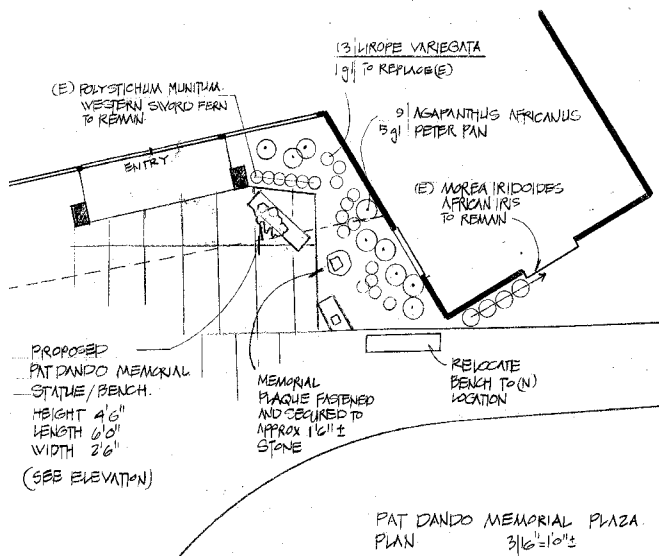 13 LIROPE VARIEGATA
1 gl TO REPLACE (E)
(E) POLYSTICHUM MUNITUM
WESTERN SWORD FERN
TO REMAIN
9 AGAPANTHUS AFRICANUS
5 gl PETER PAN
ENTRY
(E) MOREA IRIDOIDES
AFRICAN IRIS
TO REMAIN
PROPOSED
PAT DANDO MEMORIAL
STATUE/BENCH.
HEIGHT 4'6"
LENGTH 6'0"
WIDTH 2'6"
(SEE ELEVATION)
MEMORIAL
PLAQUE FASTENED
AND SECURED TO
APPROX 1'6" ±
STONE
RELOCATE
BENCH TO (N)
LOCATION
PAT DANDO MEMORIAL PLAZA
PLAN 3/16"=1'0"±